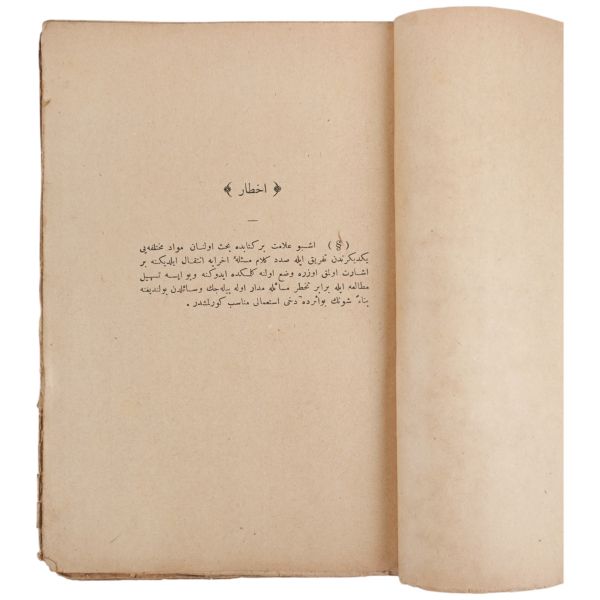 ﴿ اخطار ﴾
( § ) اشبو علامت بر كتابده بحث اولنان مواد مختلفه‌یی
یكدیكرندن تفریق ایله صدد كلام مسئلهٔ اخرایه انتقال ایلدیكنه بر
اشارت اولمق اوزره وضع اولنه كلمكده ایدوكنه وبو ایسه تسهیل
مطالعه ایله برابر تخطر مسائله مدار اوله بیله‌جك وسائلدن بولندیغنه
بناءً شونك بواثرده دخی استعمالی مناسب كورلمشدر .